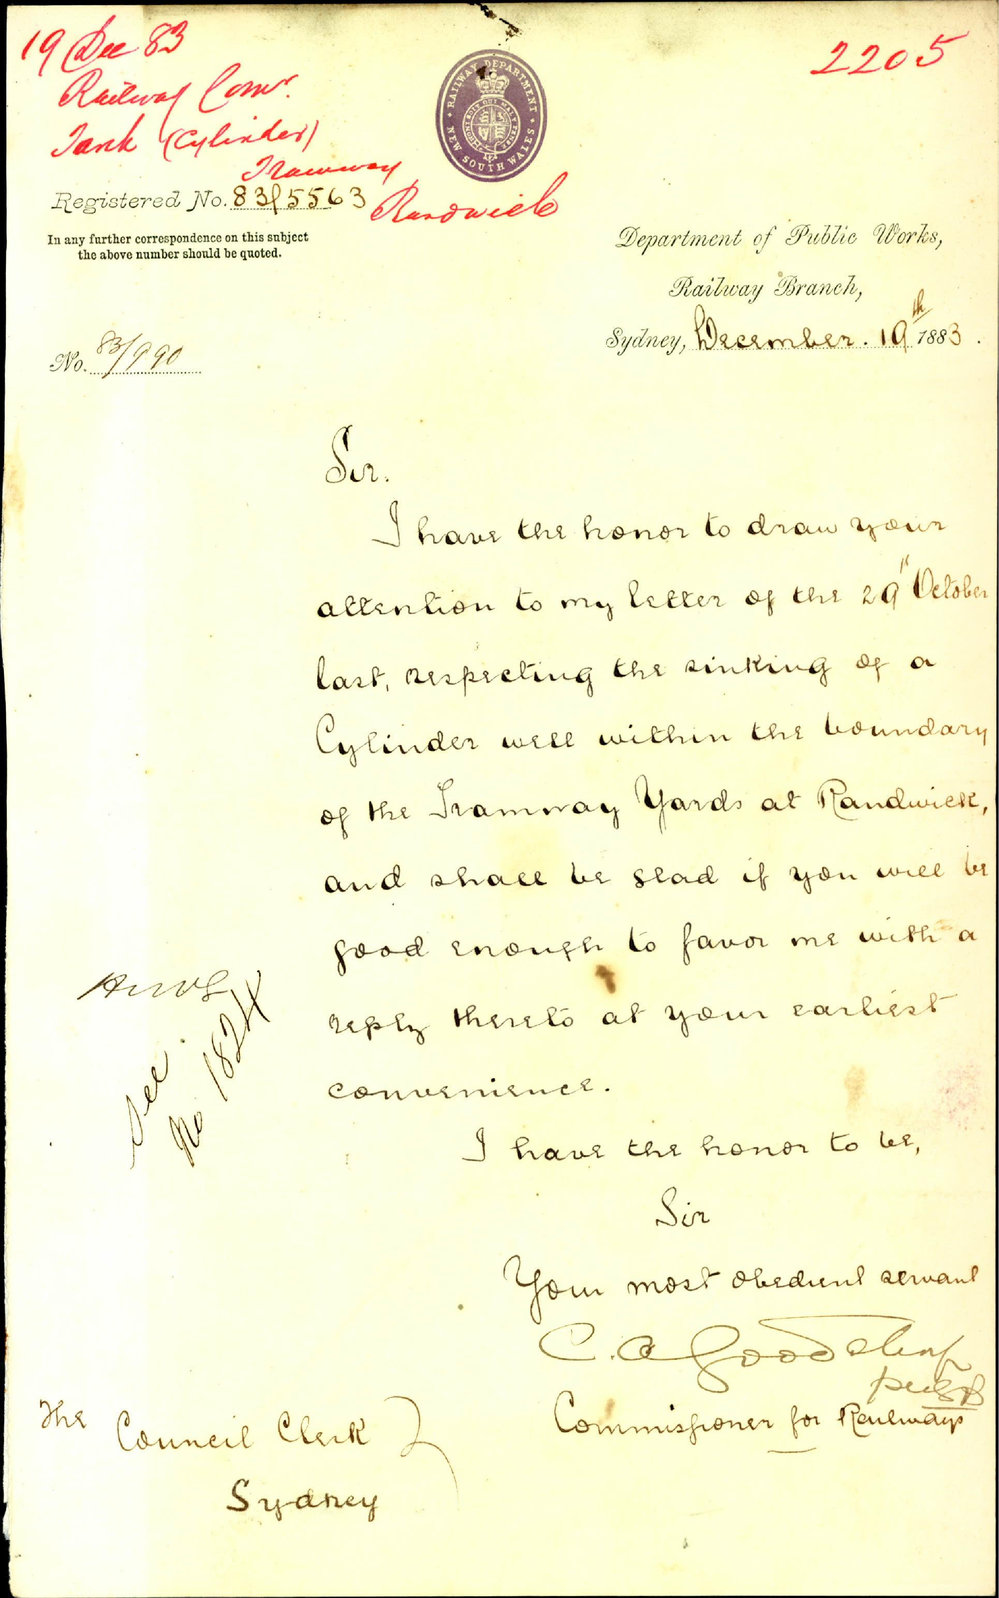 19 Dec 83
2205
Railway Comr.
Tank (Cylinder)
Tramway
Randwick
RAILWAY DEPARTMENT
NEW SOUTH WALES
Registered No. 83/5563
In any further correspondence on this subject
the above number should be quoted.
Department of Public Works,
Railway Branch,
Sydney, December. 19th 1883.
No. 83/990
Sir.
I have the honor to draw your
attention to my letter of the 29th October
last, respecting the sinking of a
Cylinder well within the boundary
of the Tramway Yards at Randwick,
and shall be glad if you will be
good enough to favor me with a
reply thereto at your earliest
convenience.
See
No 1824
I have the honor to be,
Sir
Your most obedient servant
C. A. Goodchap
Commissioner for Railways
The
Council Clerk
Sydney